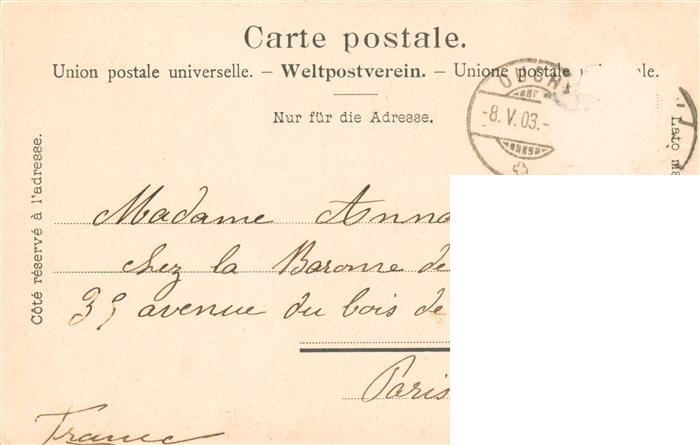 Carte postale.
Union postale universelle. – Weltpostverein. – Unione postale
Nur für die Adresse.
Côté réservé à l'adresse.
Lato
-8. V. 03.-
Madame Anna
chez la Baronne de
35 avenue du bois de
Paris
France